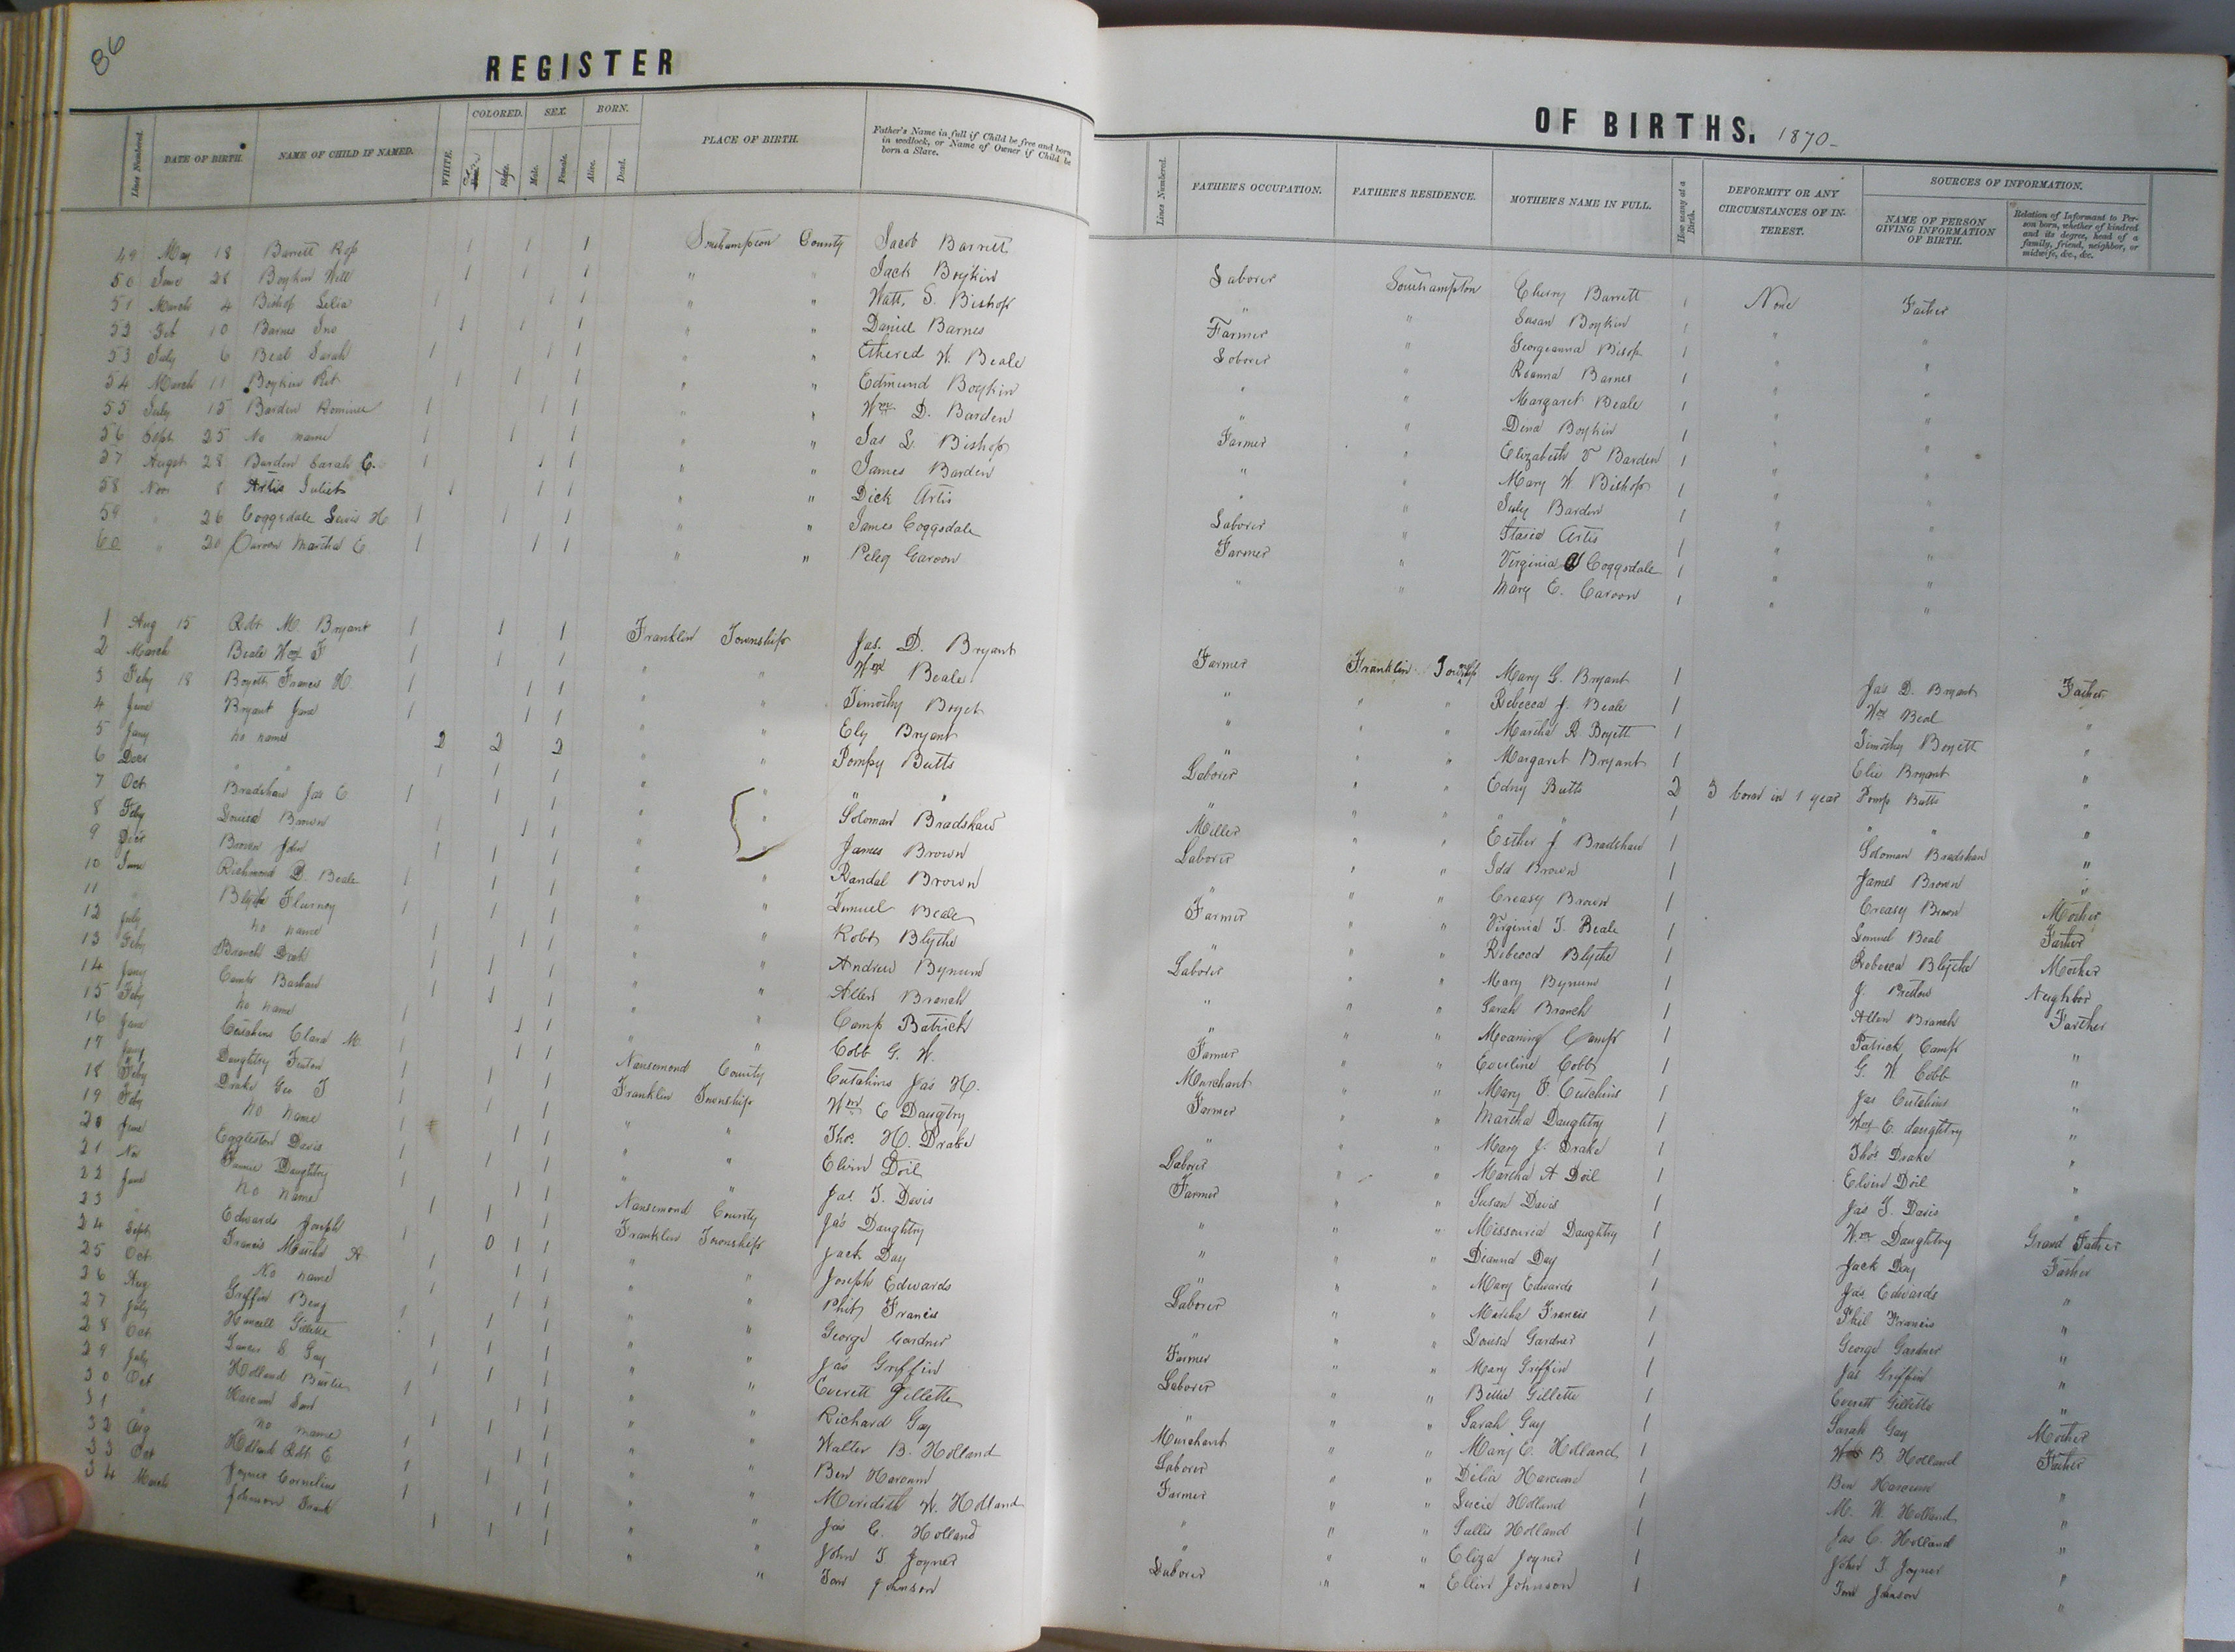 86
REGISTER
Lines Numbered. DATE OF BIRTH. NAME OF CHILD IF NAMED. WHITE. COLORED. SEX. Male. Female. BORN. Alive. Dead. PLACE OF BIRTH. Father's Name in full if Child be free and born in wedlock, or Name of Owner if Child be born a Slave.
49 May 18 Barrett Rop 1 1 1 Southampton County Jacob Barrett
50 June 28 Boykin Will 1 1 1 " " Jack Boykin
51 March 4 Bishop Lelia 1 1 1 " " Watt. S. Bishop
52 Feb 10 Barnes Jno 1 1 1 " " Daniel Barnes
53 July 6 Beal Sarah 1 1 1 " " Ethered W. Beale
54 March 11 Boykin 1 1 1 " " Edmund Boykin
55 July 15 Barden 1 1 1 " " Wm D. Barden
56 Sept 25 No name 1 1 1 " " Jas L. Bishop
57 Augst 28 Barden Sarah E. 1 1 1 " " James Barden
58 Nov 8 Artis Juliet 1 1 1 " " Dick Artis
59 " 26 Coggsdale Lewis H 1 1 1 " " James Coggsdale
60 " 20 Caroon Martha E 1 1 1 " " Peleg Caroon
1 Aug 15 Robt M. Bryant 1 1 1 Franklin Township Jas. D. Bryant
2 March Beale Wm F 1 1 1 " " Wm Beale
3 Feby 18 Boyett Francis H. 1 1 1 " " Timothy Boyet
4 June Bryant Jane 1 1 1 " " Ely Bryant
5 Jany no names 2 2 2 " " Pompy Butts
6 Decr " " 1 1 1 " " " "
7 Oct Bradshaw Jas E 1 1 1 " " Soloman Bradshaw
8 Feby Louisa Brown 1 1 1 " " James Brown
9 Decr Brown John 1 1 1 " " Randal Brown
10 June Richmond D. Beale 1 1 1 " " Lemuel Beale
11 " Blythe Flurney 1 1 1 " " Robt Blythe
12 July no name 1 1 1 " " Andrew Bynum
13 Feby Branch 1 1 1 " " Allen Branch
14 Jany Camp 1 1 1 " " Camp Batrick
15 Feby no name 1 1 1 " " Cobb G. W.
16 June Cutchins Clara M. 1 1 1 Nansemond County Cutchins Jas H.
17 Jany Daughtry 1 1 1 Franklin Township Wm E Daugtry
18 Feby Drake Geo T 1 1 1 " " Thos. H. Drake
19 Feby no name 1 1 1 " " Elvin Doil
20 June Eggleston Davis 1 1 1 " " Jas. T. Davis
21 No Fannie Daughtry 1 1 1 Nansemond County Jas Daughtry
22 June No name 1 1 1 Franklin Township Jack Day
23 " Edwards Joseph 1 0 1 1 " " Joseph Edwards
24 Septr Francis Martha A 1 1 1 " " Phil Francis
25 Oct No name 1 1 1 " " George Gardner
26 Aug Griffin Benj 1 1 1 " " Jas Griffin
27 July Gillette 1 1 1 " " Everett Gillette
28 Oct S. Gay 1 1 1 " " Richard Gay
29 July Holland 1 1 1 " " Walter B. Holland
30 Oct Harcum 1 1 1 " " Ben Harcum
31 " no name 1 1 1 " " Meridith W. Holland
32 Aug Holland Robt E 1 1 1 " " Jas C. Holland
33 Oct Joyner Cornelius 1 1 1 " " John T Joyner
34 March Johnson Frank 1 1 1 " " Tom Johnson
OF BIRTHS. 1870-
Lines Numbered. FATHER'S OCCUPATION. FATHER'S RESIDENCE. MOTHER'S NAME IN FULL. How many at a Birth. DEFORMITY OR ANY CIRCUMSTANCES OF INTEREST. SOURCES OF INFORMATION. NAME OF PERSON GIVING INFORMATION OF BIRTH. Relation of Informant to Person born, whether of kindred and its degree, head of a family, friend, neighbor, or midwife, &c., &c.
Laborer Southampton Cherry Barrett 1 None Father
" " Susan Boykin 1 " "
Farmer " Georgeanna Bisop 1 " "
Laborer " Roanna Barnes 1 " "
" " Margaret Beale 1 " "
" " Dena Boykin 1 " "
Farmer " Elizabeth V Barden 1 " "
" " Mary W Bishop 1 " "
" " July Barden 1 " "
Laborer " Artis 1 " "
Farmer " Virginia Coggsdale 1 " "
" " Mary E. Caroon 1 " "
Farmer Franklin Township Mary G. Bryant 1 Jas D. Bryant Father
" " " Rebecca J. Beale 1 Wm Beal "
" " " Martha R. Boyett 1 Timothy Boyett "
" " " Margaret Bryant 1 Elie Bryant "
Laborer " " Edny Butts 2 3 born in 1 year Pomp Butts "
" " " " 1 " " "
Miller " " Esther J Bradshaw 1 Soloman Bradshaw "
Laborer " " Idd Brown 1 James Brown "
" " " Creasy Brown 1 Creasy Brown Mother
Farmer " " Virginia T. Beale 1 Lemuel Beal Father
" " " Rebecca Blythe 1 Rebecca Blythe Mother
Laborer " " Mary Bynum 1 J. Neighbor
" " " Sarah Branch 1 Allen Branch Farther
" " " Moaning Camp 1 Patrick Camp "
Farmer " " Eveline Cobb 1 G. W. Cobb "
Merchant " " Mary P. Cutchins 1 Jas Cutchins "
Farmer " " Martha Daughtry 1 Wm E. daughtry "
" " " Mary J. Drake 1 Thos Drake "
Laborer " " Martha A Doil 1 Elvin Doil "
Farmer " " Susan Davis 1 Jas T. Davis "
" " " Missouria Daughtry 1 Wm Daughtry Grand Father
" " " Dianna Day 1 Jack Day Father
" " " Mary Edwards 1 Jas Edwards "
Laborer " " Martha Francis 1 Phil Francis "
" " " Louisa Gardner 1 George Gardner "
Farmer " " Mary Griffin 1 Jas Griffin "
Laborer " " Bettie Gillette 1 Everett Gillette "
" " " Sarah Gay 1 Sarah Gay Mother
Merchant " " Mary E. Holland 1 B. Holland Father
Laborer " " Delia Harcum 1 Ben Harcum "
Farmer " " Lucie Holland 1 M. W. Holland "
" " " Sallie Holland 1 Jas C. Holland "
" " " Eliza Joyner 1 John T Joyner "
Laborer " " Ellen Johnson 1 Tom Johnson "